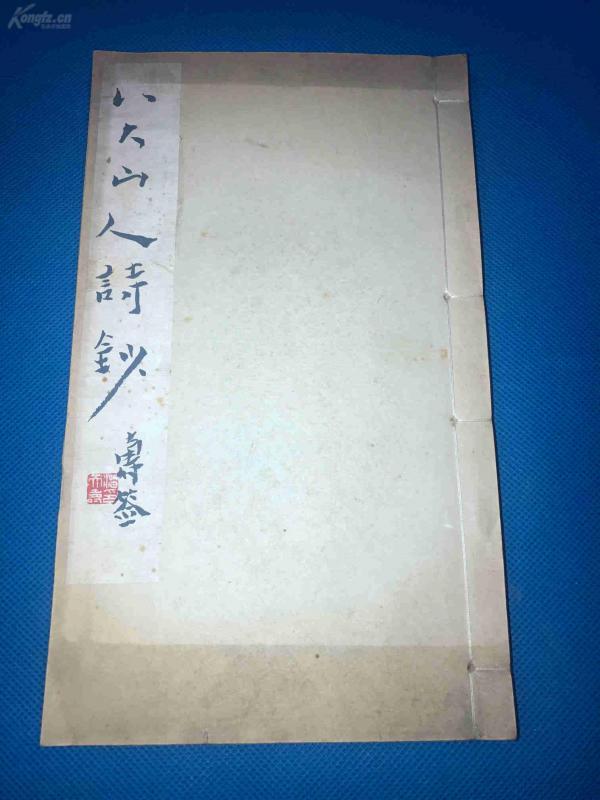 Kongfz.cn
八大山人詩鈔
專簽